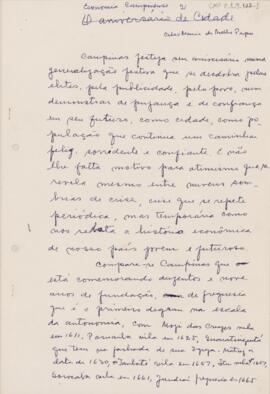 Economia Campineira 21
O aniversário da Cidade
Celso Maria de Mello Pupo
Campinas festeja seu aniversário numa
generalização festiva que se desdobra pelas
elites, pela publicidade, pelo povo, num
demonstrar de pujança e de confiança
em seu futuro, como cidade, como po-
pulação que continua um caminhar
feliz, sorridente e confiante. E não
lhe falta motivo para otimismo que se
revela mesmo entre nuvens som-
brias de crise, crise que se repete
periódica, mas temporária como
nos relata a história econômica
de nosso país jovem e futuroso.
Compare-se Campinas que
está comemorando duzentos e nove
anos de fundação, de freguesia
que é o primeiro degrau na escala
da autonomia, com Mogi das Cruzes vila
em 1611, Parnaíba vila em 1625, Guaratinguetá
que tem na fachada de sua Igreja Matriz a
data de 1630, Taubaté vila em 1645, Itu vila 1657,
Sorocaba vila em 1661, Jundiaí freguesia em 1665